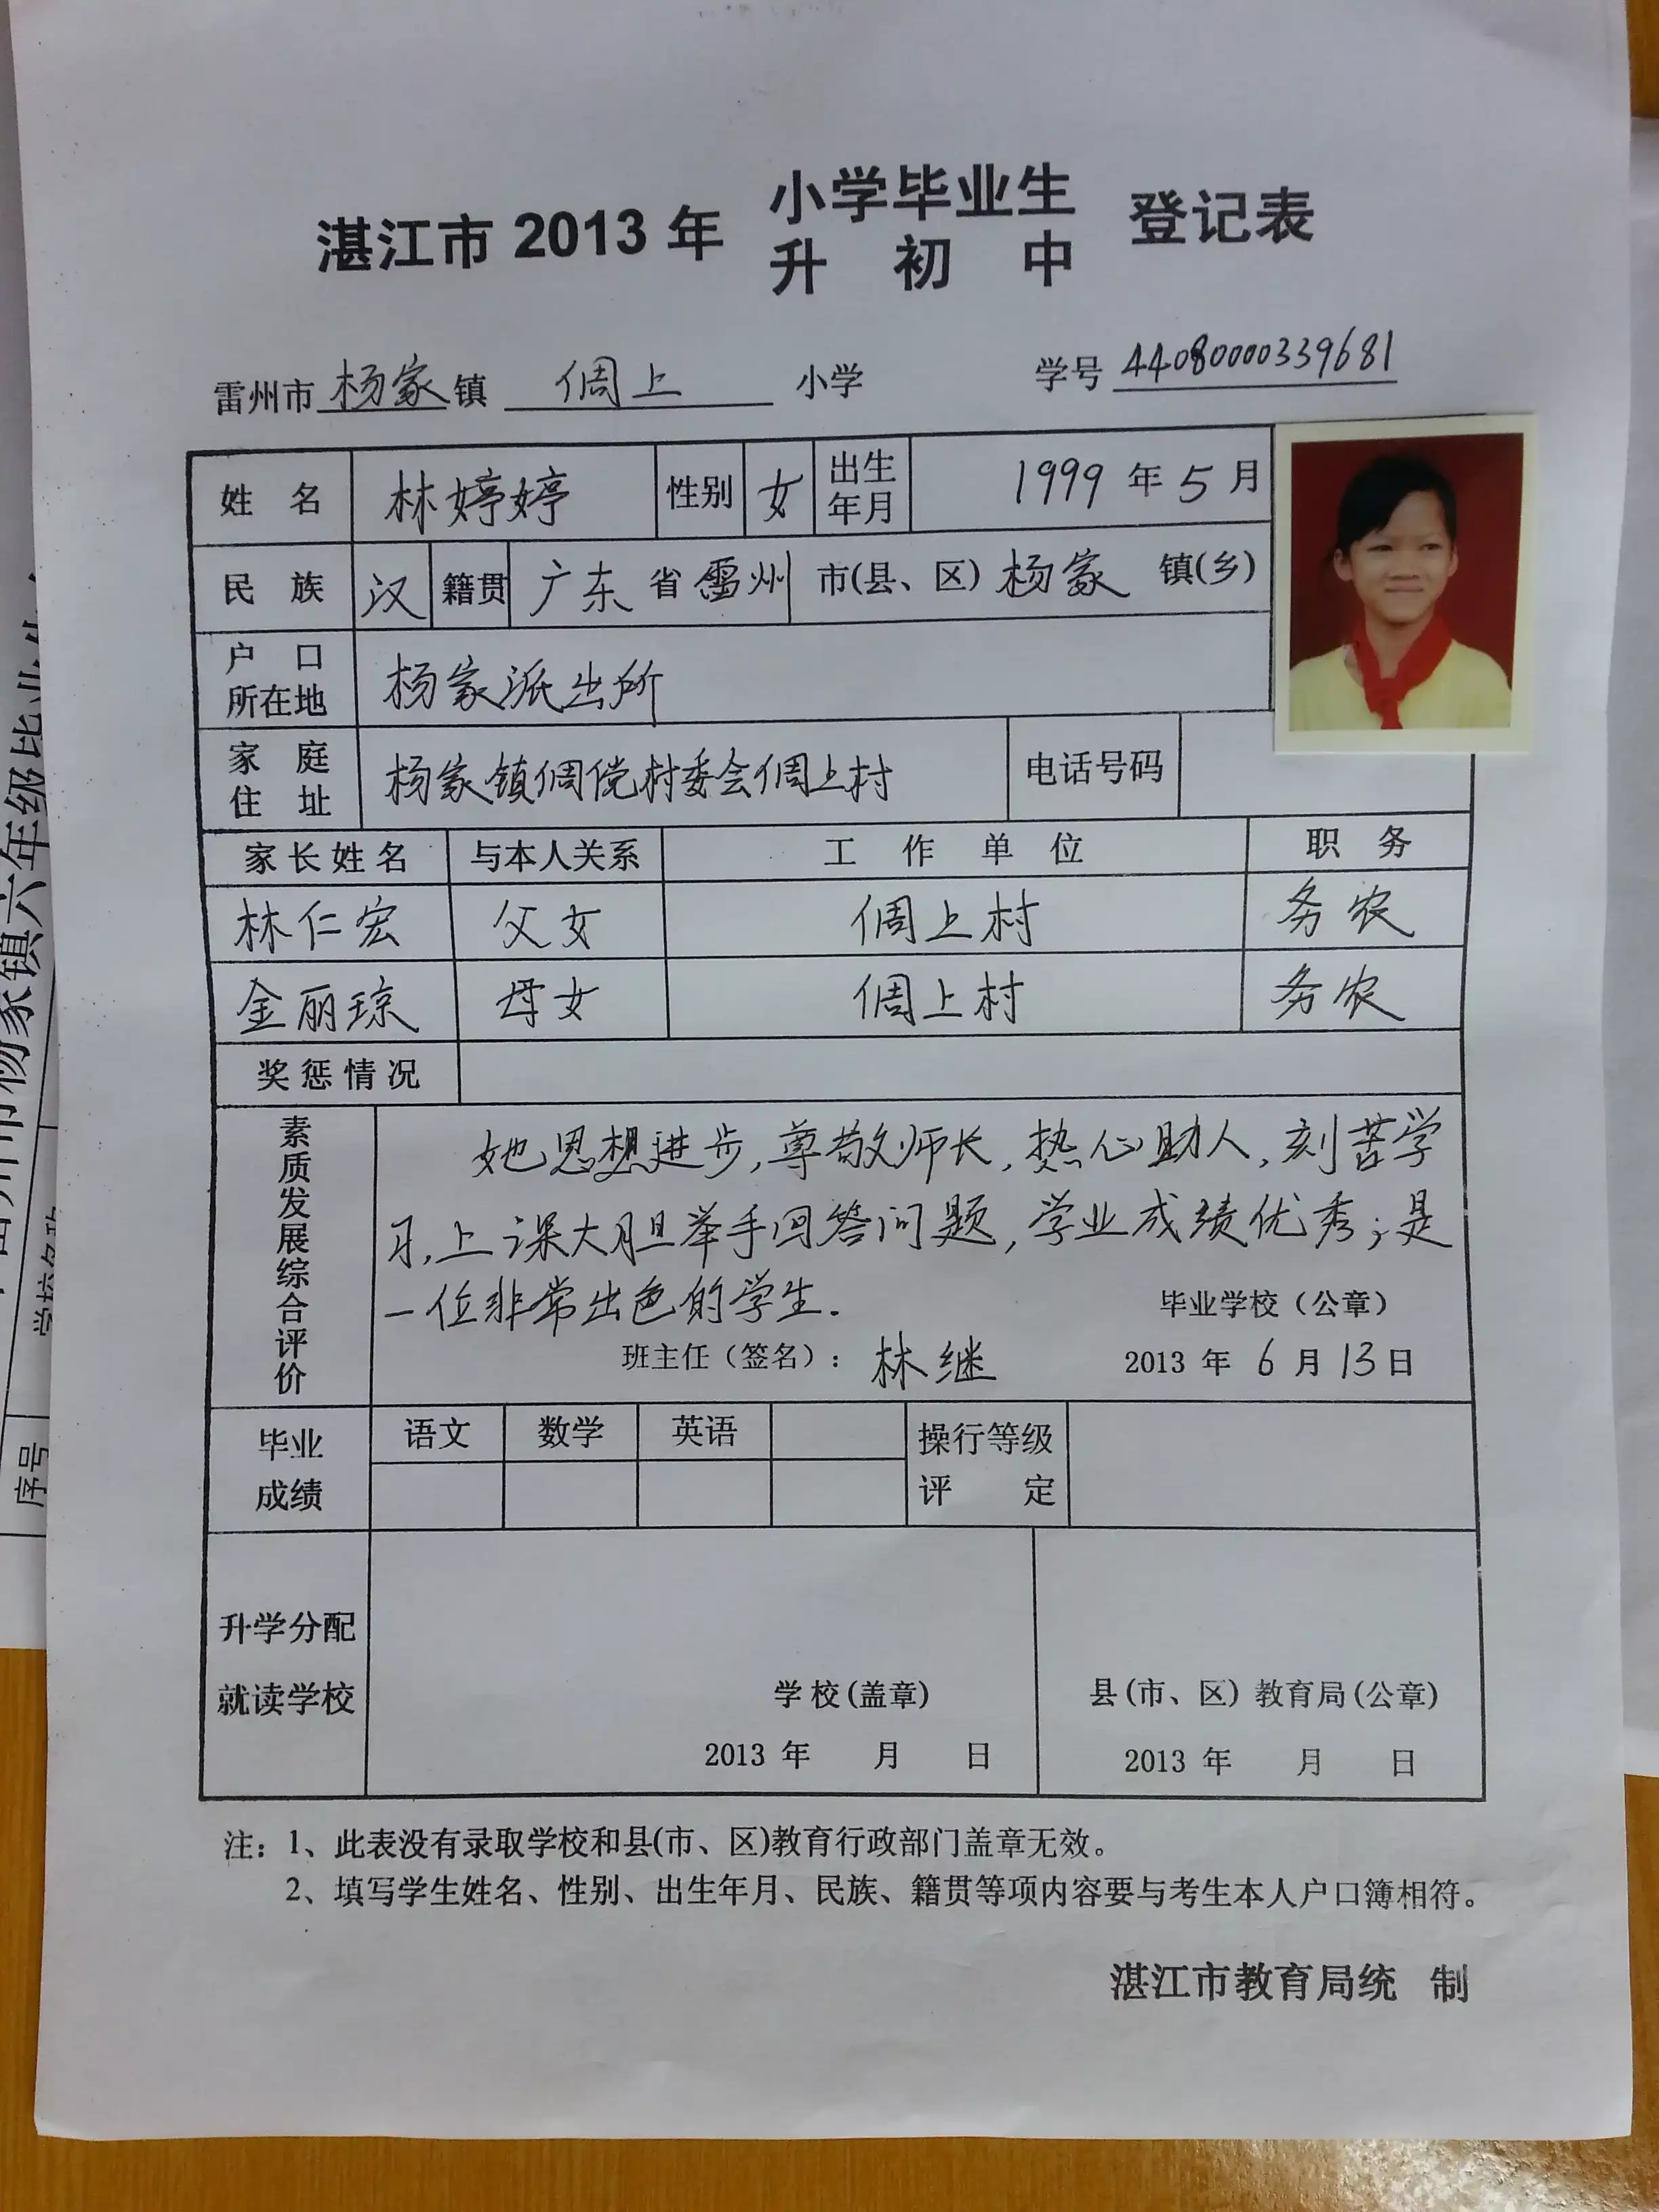 湛江市 2013 年 小学毕业生 登记表
升 初 中
雷州市 杨家 镇 倜上 小学 学号 44080000339681
姓 名 林婷婷 性别 女 出生年月 1999 年 5 月
民 族 汉 籍贯 广东 省 雷州 市(县、区) 杨家 镇(乡)
户 口
所在地 杨家派出所
家 庭
住 址 杨家镇倜傥村委会倜上村 电话号码
家长姓名 与本人关系 工 作 单 位 职 务
林仁宏 父女 倜上村 务农
金丽琼 母女 倜上村 务农
奖惩情况
素质发展综合评价
她思想进步,尊敬师长,热心助人,刻苦学
习,上课大胆举手回答问题,学业成绩优秀;是
一位非常出色的学生.
毕业学校（公章）
班主任（签名）: 林继 2013 年 6 月 13 日
毕业
成绩 语文 数学 英语 操行等级
评 定
升学分配
就读学校
学校(盖章) 县(市、区) 教育局(公章)
2013 年 月 日 2013 年 月 日
注: 1、此表没有录取学校和县(市、区)教育行政部门盖章无效。
2、填写学生姓名、性别、出生年月、民族、籍贯等项内容要与考生本人户口簿相符。
湛江市教育局统 制
序号